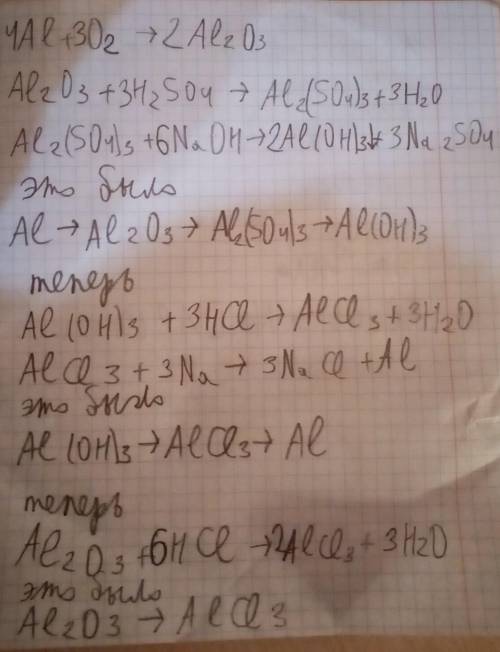 4Al+3O2 → 2Al2O3
Al2O3 + 3H2SO4 → Al2(SO4)3 + 3H2O
Al2(SO4)3 + 6NaOH → 2Al(OH)3↓ + 3Na2SO4
это было
Al → Al2O3 → Al2(SO4)3 → Al(OH)3
теперь
Al(OH)3 + 3HCl → AlCl3 + 3H2O
AlCl3 + 3Na → 3NaCl + Al
это было
Al(OH)3 → AlCl3 → Al
теперь
Al2O3 + 6HCl → 2AlCl3 + 3H2O
это было
Al2O3 → AlCl3